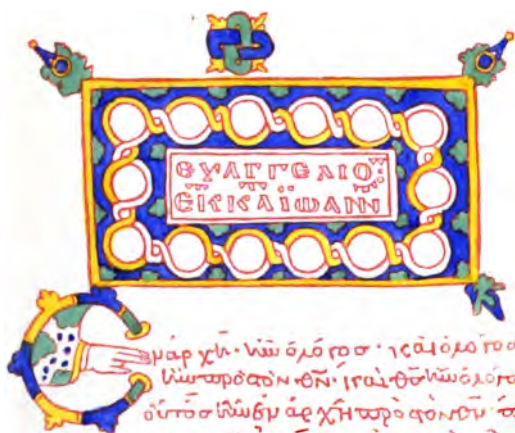 ΕΥΑΓΓΕΛΙΟ
ΪΩΑΝΝ
Ἐν ἀρχῆ· ἦν ὁ λόγοσ· καὶ ὁ λόγοσ
ἦν πρὸσ τὸν θν· καὶ θσ ἦν ὁ λόγο
οὗτοσ ἦν ἐν ἀρχῆ πρὸσ τὸν θν·